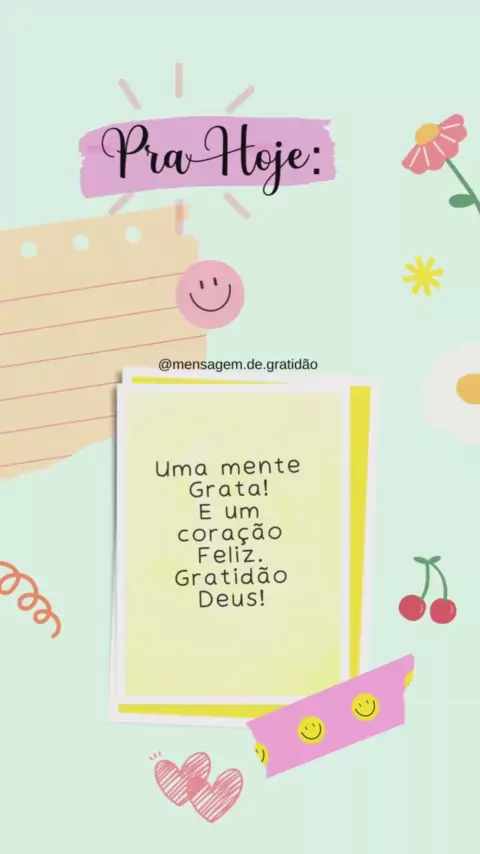 Pra Hoje:
@mensagem.de.gratidão
Uma mente
Grata!
E um
coração
Feliz.
Gratidão
Deus!